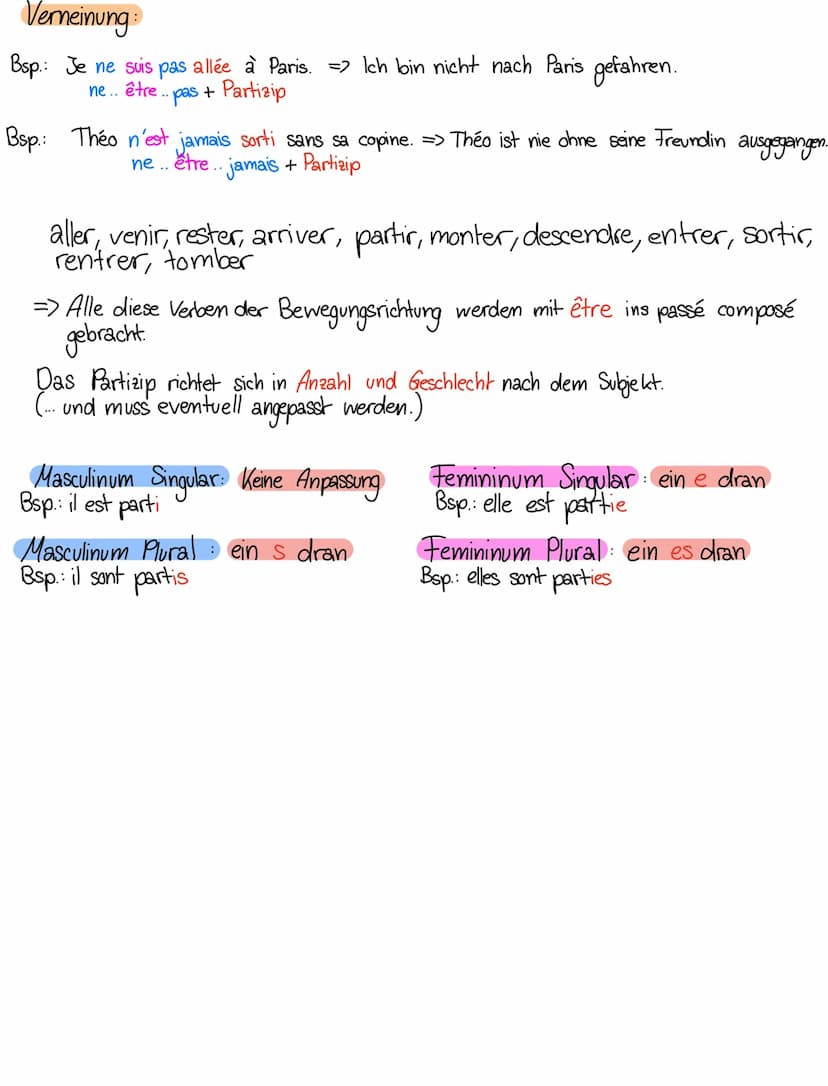 Verneinung:
Bsp.: Je ne suis pas allée à Paris. => Ich bin nicht nach Paris gefahren.
ne.. être.. pas + Partizip
Bsp.: Théo n'est jamais sorti sans sa copine. => Théo ist nie ohne seine Freundin ausgegangen.
ne .. être .. jamais + Partizip
aller, venir, rester, arriver, partir, monter, descendre, entrer, sortir,
rentrer, tomber
=> Alle diese Verben der Bewegungsrichtung werden mit être ins passé composé
gebracht.
Das Partizip richtet sich in Anzahl und Geschlecht nach dem Subjekt.
(... und muss eventuell angepasst werden.)
Masculinum Singular: Keine Anpassung
Bsp.: il est parti
Femininum Singular: ein e dran
Bsp.: elle est partie
Masculinum Plural: ein s dran
Bsp.: il sont partis
Femininum Plural: ein es dran
Bsp.: elles sont parties